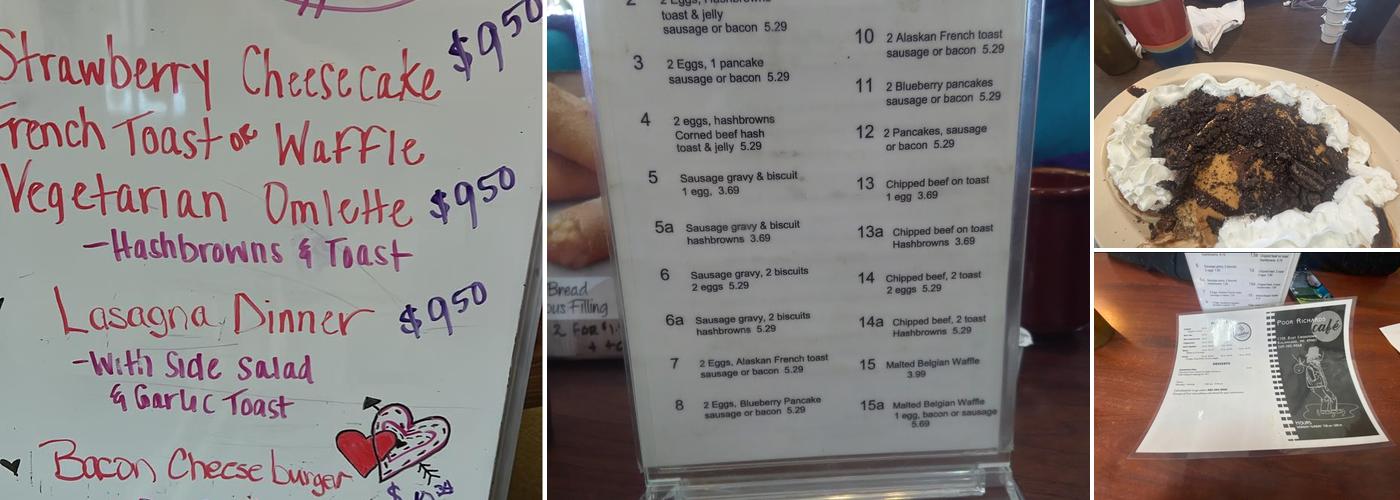 Strawberry Cheesecake $9.50
French Toast or Waffle
Vegetarian Omlette $9.50
-Hashbrowns & Toast
Lasagna Dinner $9.50
-With Side Salad
& Garlic Toast
Bacon Cheeseburger
2 2 Eggs, Hashbrowns
toast & jelly
sausage or bacon 5.29
3 2 Eggs, 1 pancake
sausage or bacon 5.29
4 2 eggs, hashbrowns
Corned beef hash
toast & jelly 5.29
5 Sausage gravy & biscuit
1 egg, 3.69
5a Sausage gravy & biscuit
hashbrowns 3.69
6 Sausage gravy, 2 biscuits
2 eggs 5.29
6a Sausage gravy, 2 biscuits
hashbrowns 5.29
7 2 Eggs, Alaskan French toast
sausage or bacon 5.29
8 2 Eggs, Blueberry Pancake
sausage or bacon 5.29
10 2 Alaskan French toast
sausage or bacon 5.29
11 2 Blueberry pancakes
sausage or bacon 5.29
12 2 Pancakes, sausage
or bacon 5.29
13 Chipped beef on toast
1 egg 3.69
13a Chipped beef on toast
Hashbrowns 3.69
14 Chipped beef, 2 toast
2 eggs 5.29
14a Chipped beef, 2 toast
Hashbrowns 5.29
15 Malted Belgian Waffle
3.99
15a Malted Belgian Waffle
1 egg, bacon or sausage
5.69
Bread
Filling
2 FOR
POOR RICHARDS
café
DESSERTS
HOURS